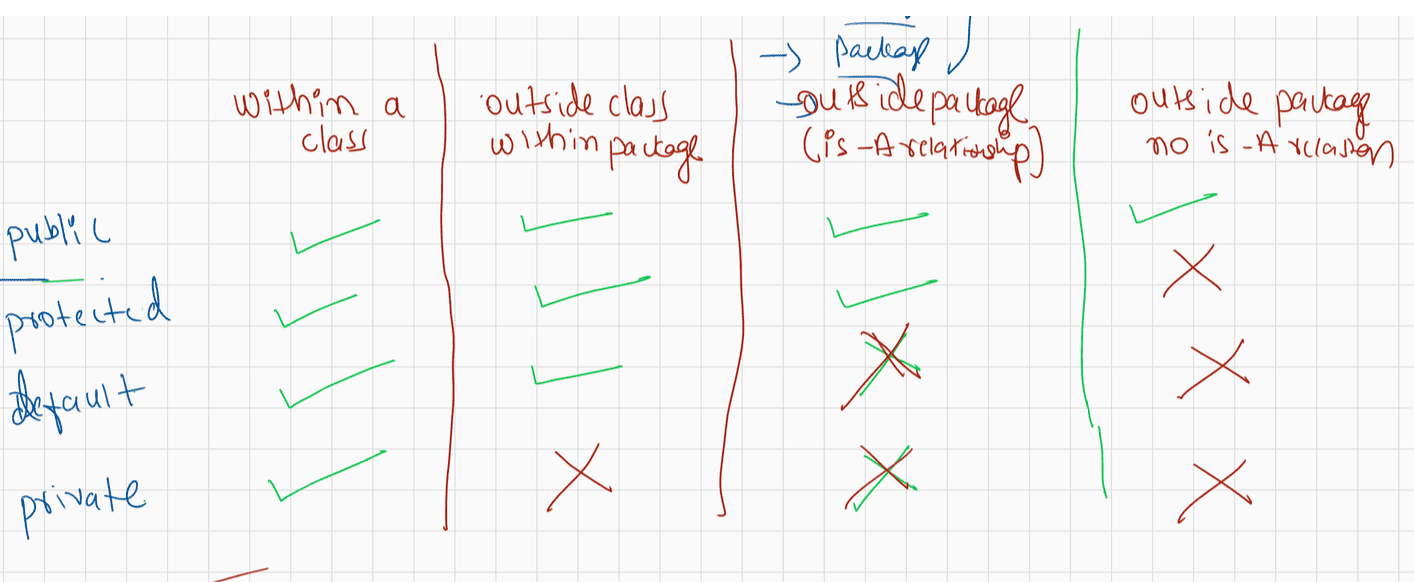 → package
within a class
outside class within package
→ outside package (is-A relationship)
outside package no is-A relation
public ✓ ✓ ✓ ✓
protected ✓ ✓ ✓ ✗
default ✓ ✓ ✗ ✗
private ✓ ✗ ✗ ✗